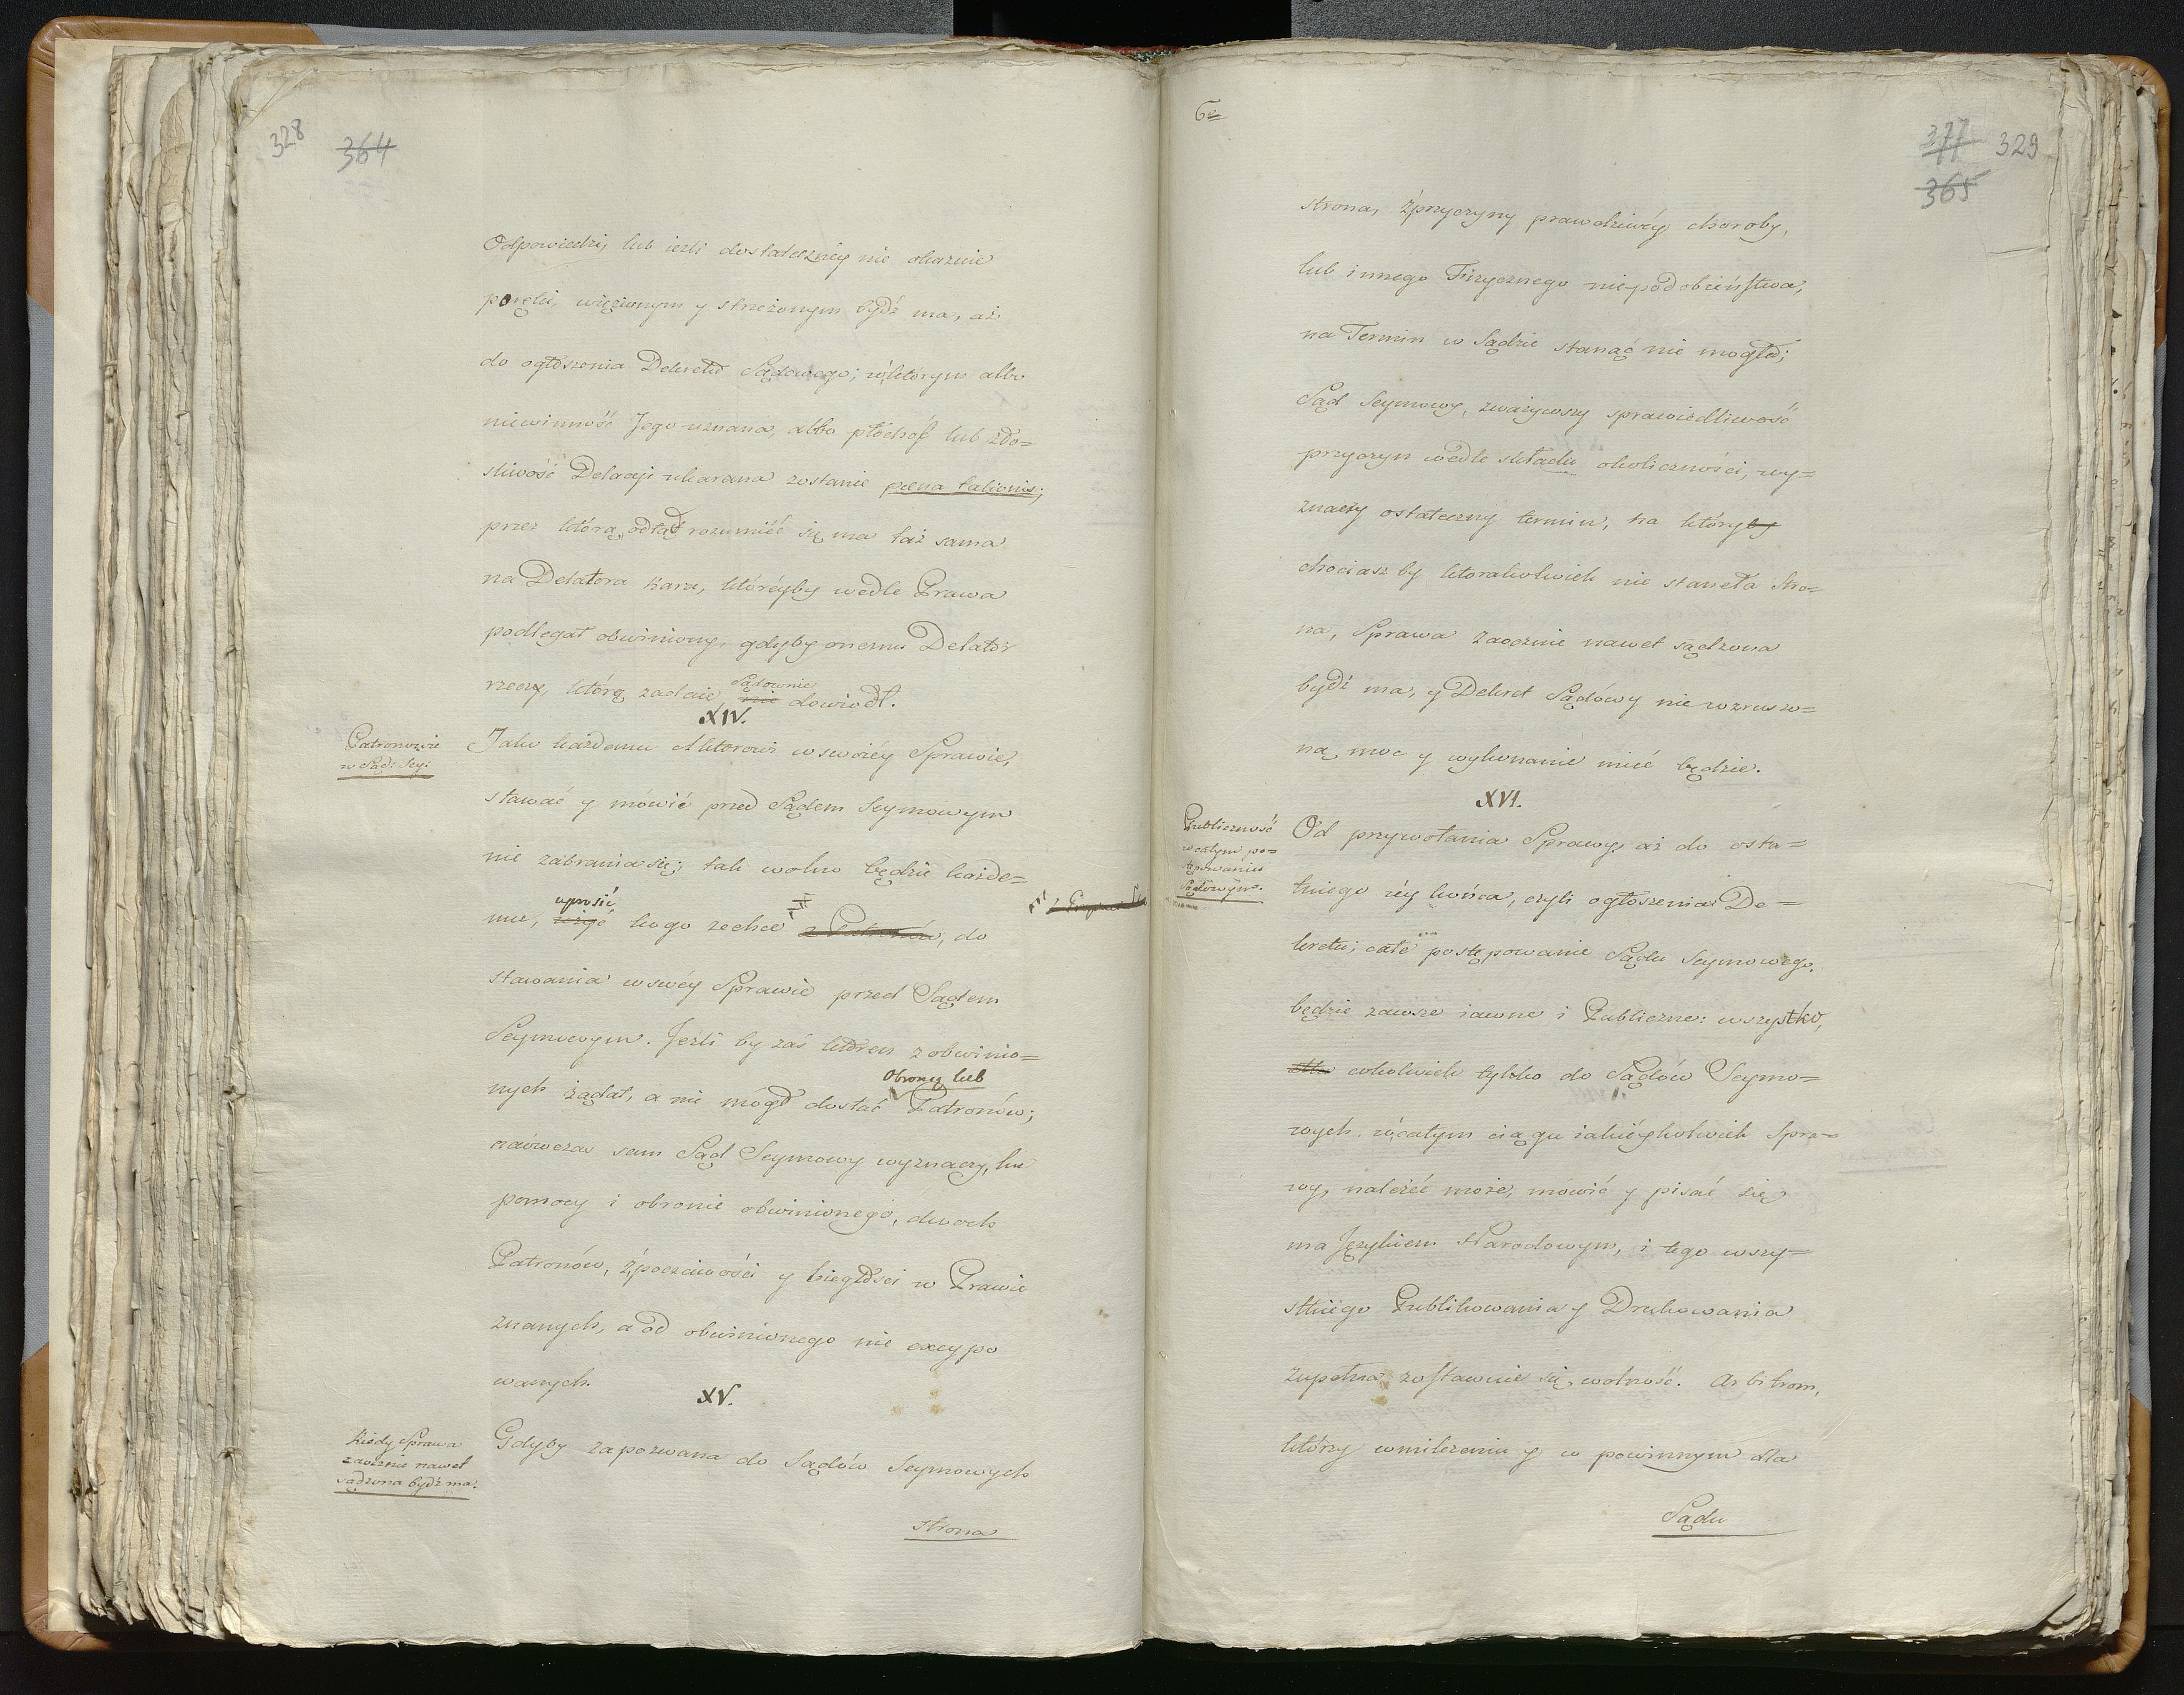 328 364
Odpowiedzi, lub iezli dostatecznéy nie okazuie
poręki, więzionym y strzeżonym bydź ma, aż
do ogłoszenia Dekretu Sądowego; w którym albo
niewinność Jego uznana, albo płochość lub zło=
śliwość Delacyi ukarana zostanie pœna talionis;
przez którą, odtąd rozumiéć się ma taż sama
na Delatora kara, któréyby wedle Prawa
podlegał obwiniony, gdyby onemu Delator
rzeczy, którą zadaie, nie Sądownie dowiodł.
XIV.
Patronowie
w Sąd: Sey:
Jako każdemu Aktorowi w swoiéy Sprawie,
stawać y mówić przed Sądem Seymowym
nie zabrania się; tak wolno będzie każde=
mu, uprosić kogo zechce z Patronów, do
stawania w swéy Sprawie przed Sądem
Seymowym. Jeźli by zaś któren z obwinio=
nych żądał, a nie mógł dostać Obrony lub Patronów;
naówczas sam Sąd Seymowy wyznaczy, ku
pomocy i obronie obwinionego, dwóch
Patronów, z poczciwości y biegłości w Prawie
znanych, a od obwinionego nie excypo
wanych.
XV.
Kiedy Sprawa
zaocznie nawet
sądzona bydź ma.
Gdyby zapozwana do Sądów Seymowych
strona
6te
377 329
365
strona, z przyczyny prawdziwéy choroby,
lub innego Fizycznego niepodobieństwa,
na Termin w Sądzie stanąć nie mogła;
Sąd Seymowy, zważywszy sprawiedliwość
przyczyn wedle składu okoliczności, wy=
znaczy ostateczny termin, na któryby
chociasz by ktorakolwiek nie staneła Stro=
na, Sprawa zaocznie nawet sądzona
bydź ma, y Dekret Sądówy nie wzruszo=
ną moc y wykonanie miéć będzie.
XVI.
Publiczność
w całym po=
stępowaniu
Sądowym.
Od przywołania Sprawy, aż do osta=
tniego iéy końca, czyli ogłoszenia De=
kretu; całe postępowanie Sądu Seymowego,
będzie zawsze iawne i Publiczne: wszystko,
cokolwiek tylko do Sądów Seymo=
wych, w całym ciągu iakiéykolwiek Spra=
wy, należéć może, mówić y pisać się
ma Językiem Narodowym, i tego wszy=
stkiego Publikowania y Drukowania
zupełna zostawuie się wolność. Arbitrom,
którzy w milczeniu y w powinnym dla
Sądu